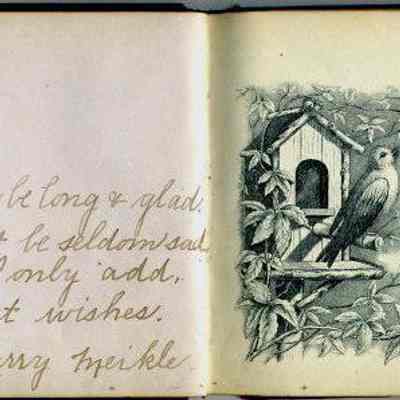 be long & glad.
be seldom sad
only add,
wishes.
Meikle